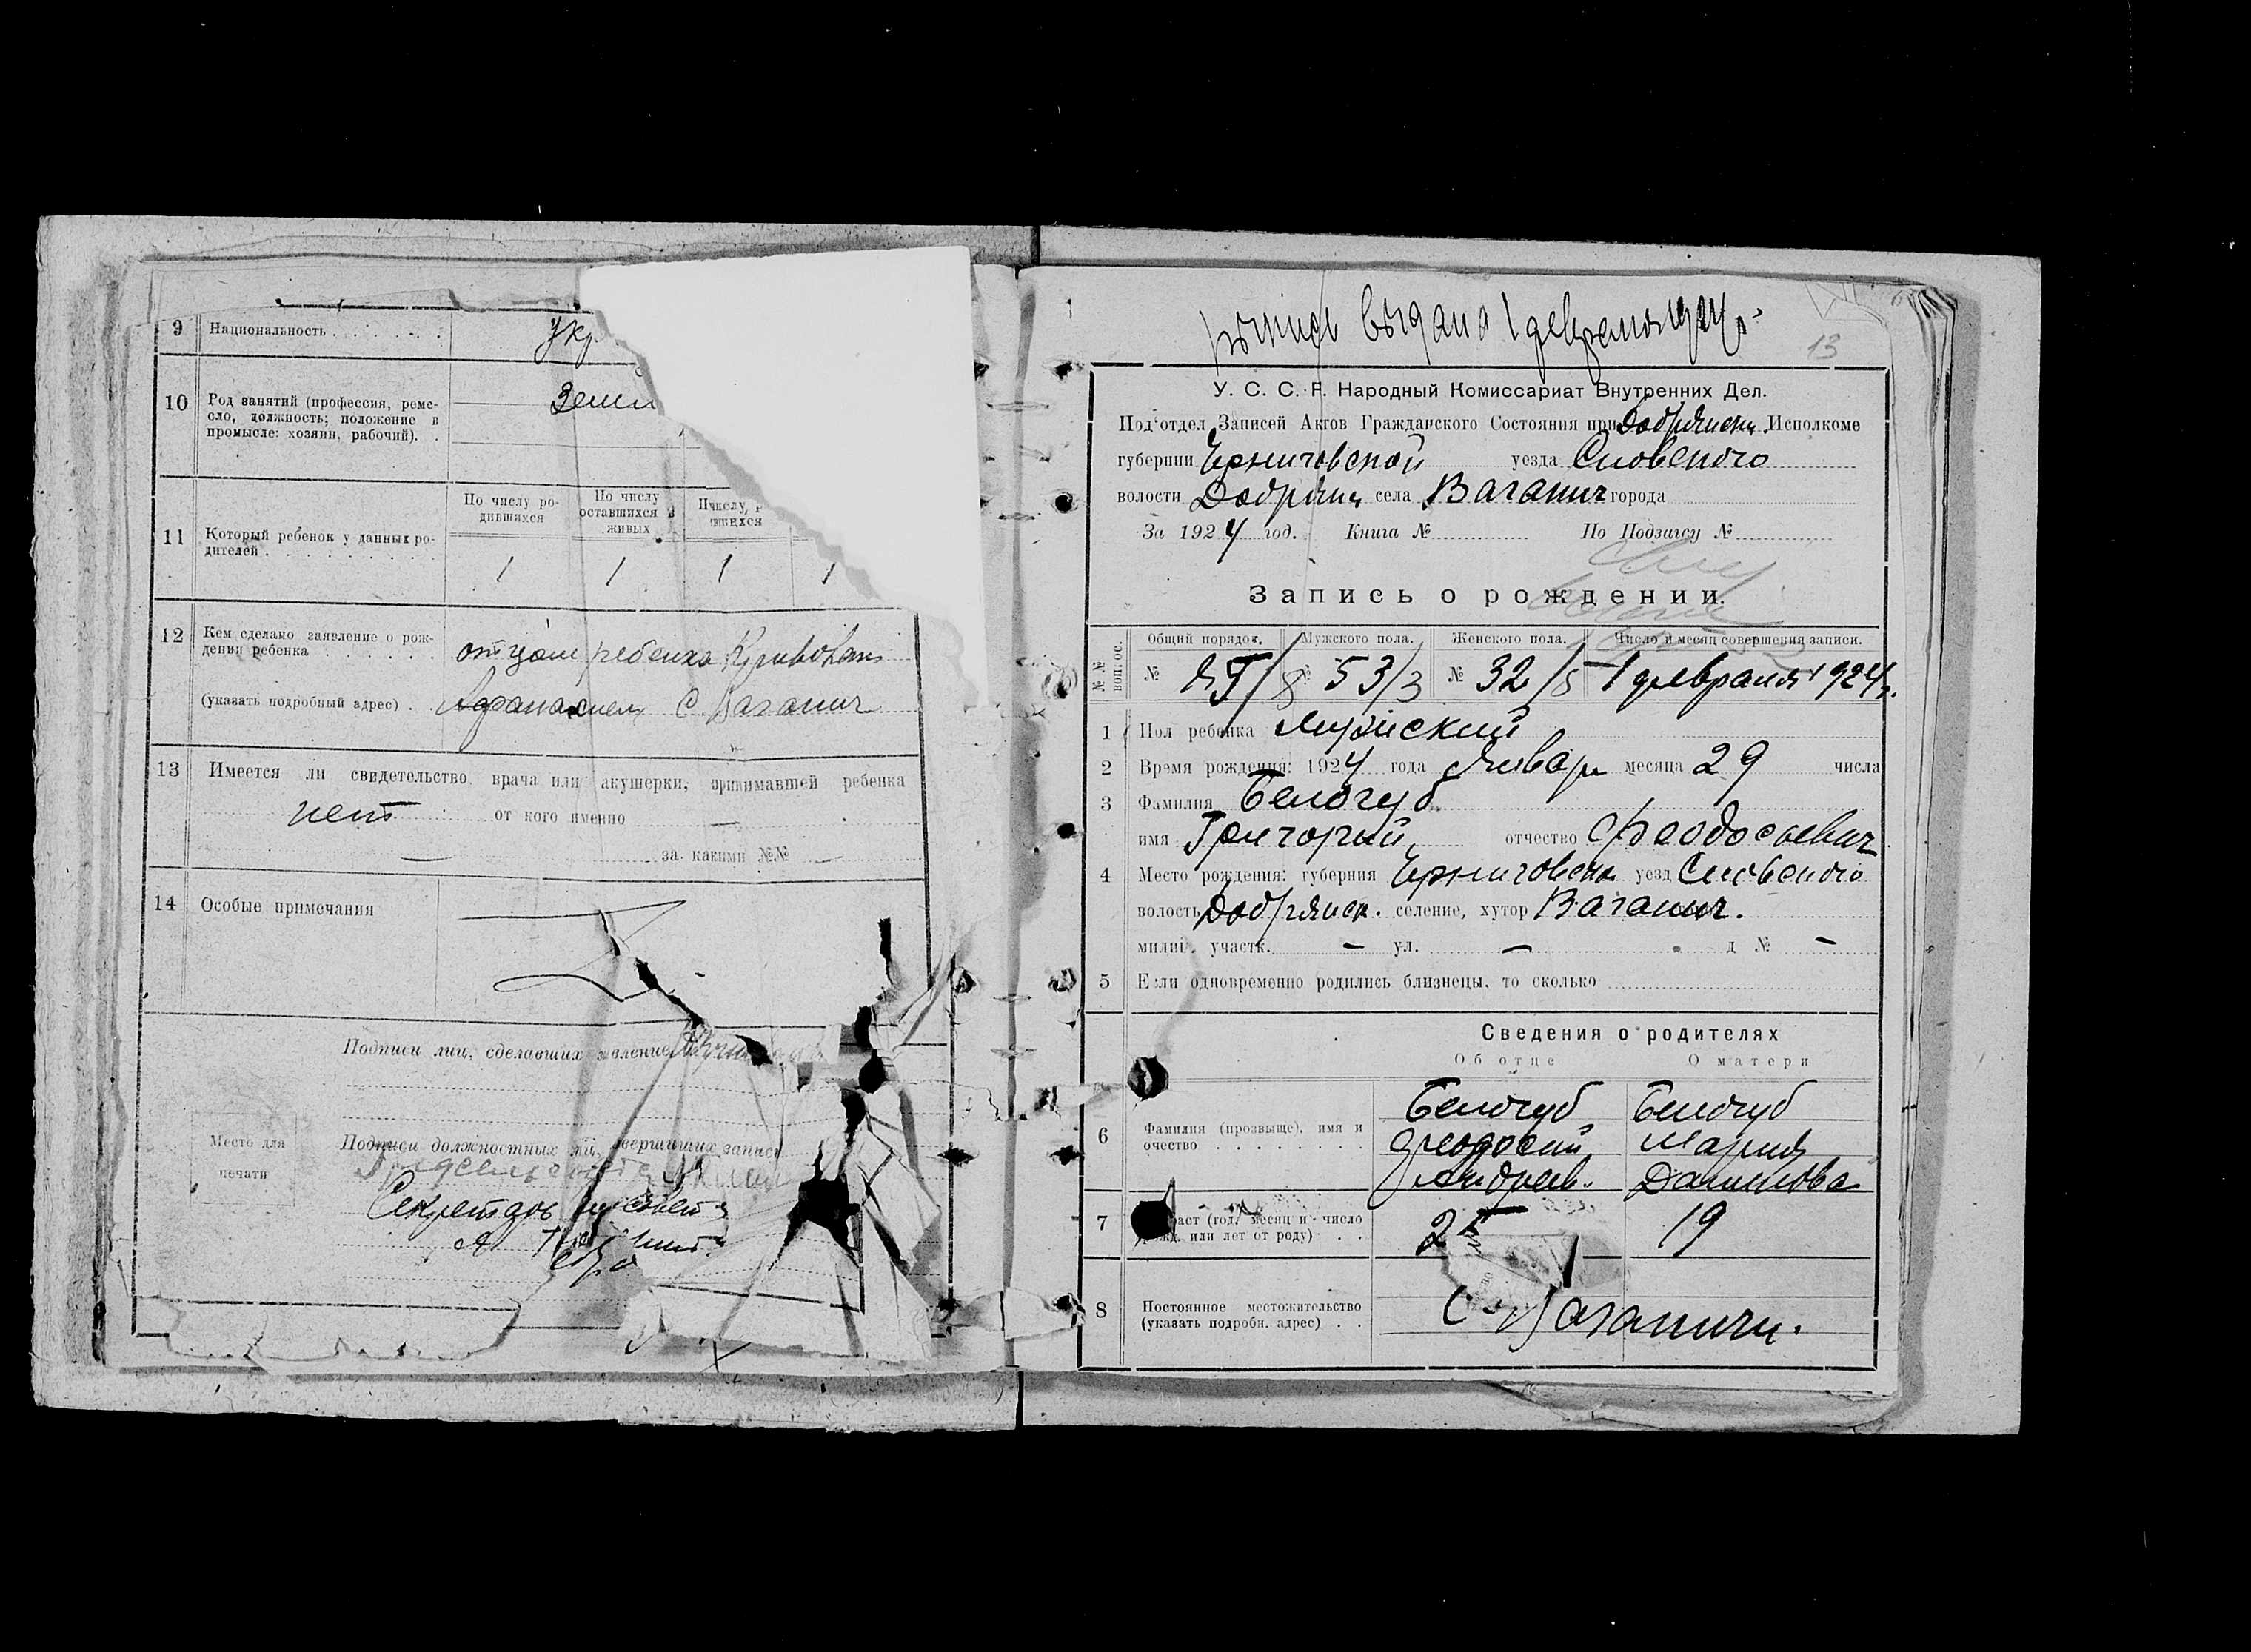 9 Национальность Укр
10 Род занятий (профессия, реме-
сло, должность; положение в
промысле: хозяин, рабочий).
Земл
11 Который ребенок у данных ро-
дителей
По числу ро-
дившихся
По числу
оставшихся в
живых
1 1 1 1
12 Кем сделано заявление о рож-
дении ребенка
отцом ребенка
(указать подробный адрес) С. Ваганич
13 Имеется ли свидетельство врача или акушерки, принимавшей ребенка
нет от кого именно —
— за какими №№ —
14 Особые примечания
Подписи лиц, сделавших заявление
Подписи должностных лиц, совершивших запись
Место для
печати
Секретарь
выдана 1 февраля 1924 г.
13
У. С. С. Р. Народный Комиссариат Внутренних Дел.
Под'отдел Записей Актов Гражданского Состояния при Добрянск. Исполкоме
губернии Черниговской уезда Сновского
волости Добрянц села Ваганич города
За 1924 год. Книга № По Подзагсу №
Запись о рождении.
№№ воп. ос.
Общий порядок. Мужского пола. Женского пола. Число и месяц совершения записи.
№ 85/8 № 53/3 № 32/5 1 февраля 1924 г.
1 Пол ребенка Мужский
2 Время рождения: 1924 года Январ месяца 29 числа
3 Фамилия Белогуб
имя Григорий, отчество Феодосьевич
4 Место рождения: губерния Черниговск уезд Сновского
волость Добрянск. селение, хутор Ваганич.
милиц. участк. — ул. — д № —
5 Если одновременно родились близнецы, то сколько
Сведения о родителях
Об отце О матери
6 Фамилия (прозвыще), имя и
очество
Белогуб Белогуб
Феодосий Мария
Андреев. Данилова
7 Возраст (год, месяц и число
рожд. или лет от роду)
25 19
8 Постоянное местожительство
(указать подробн. адрес)
С. Ваганичи.